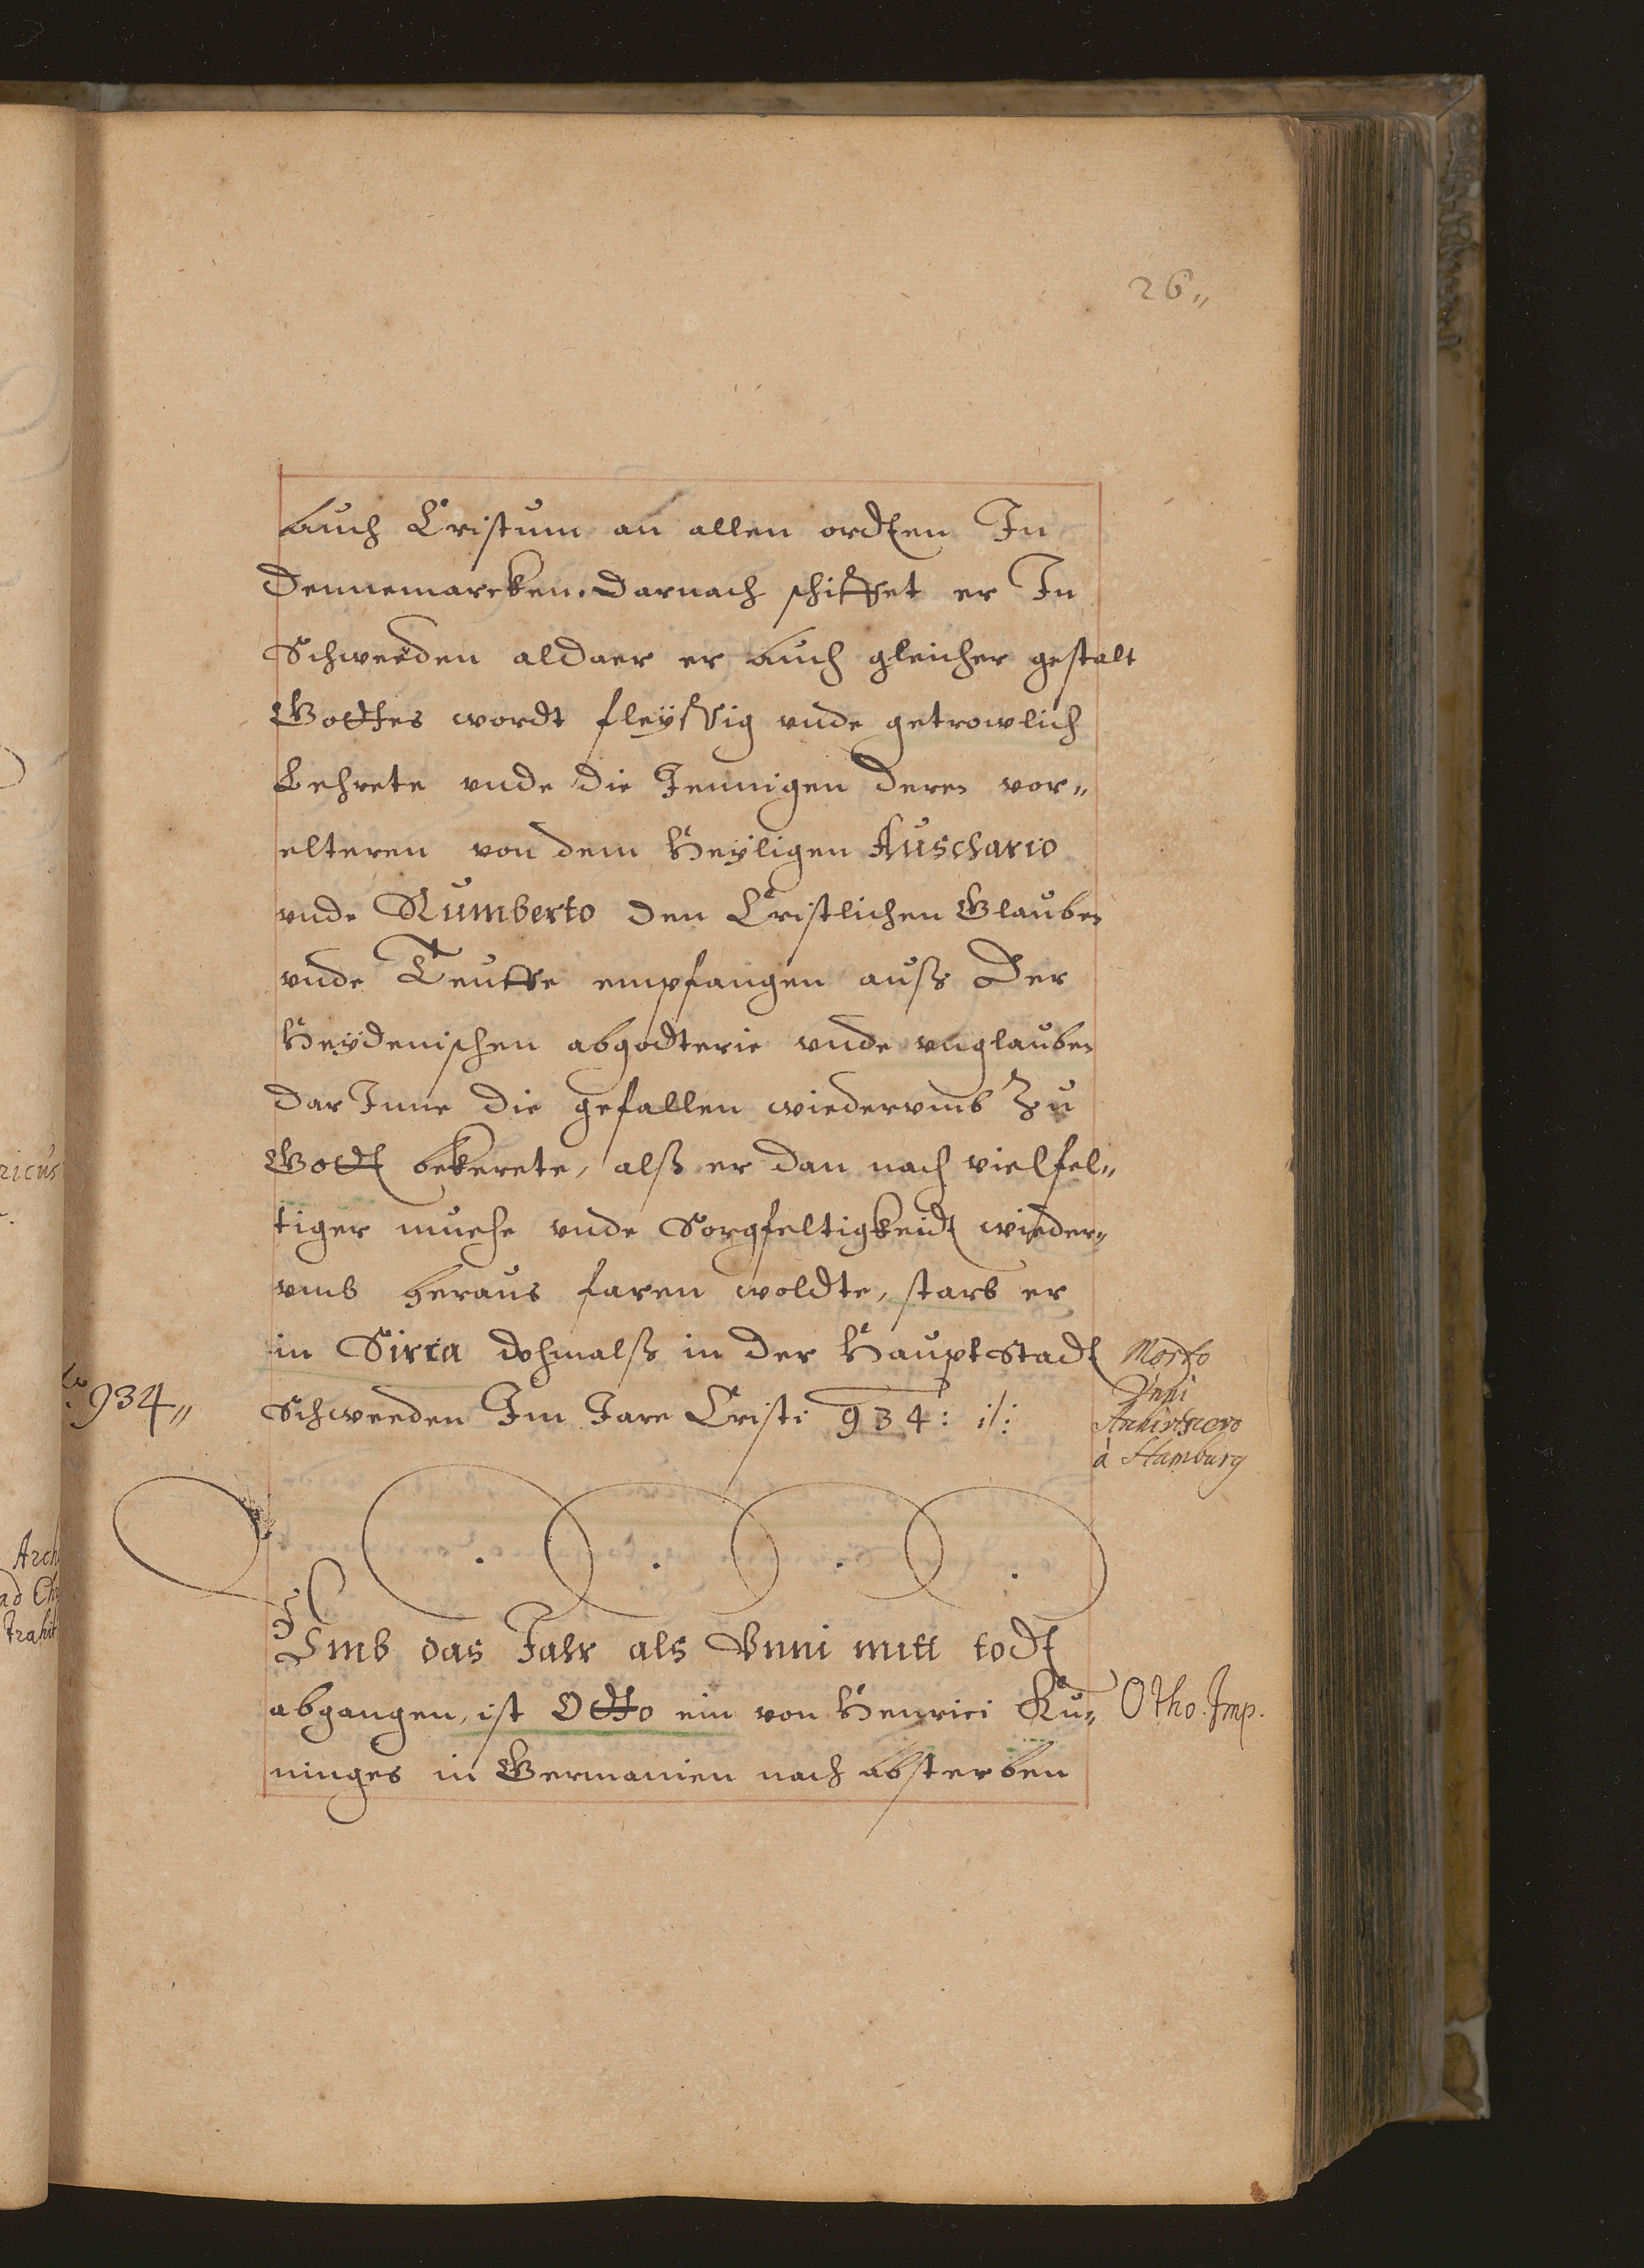 26„
Auch Cristum an allen ordten In
Dennemarcken. Darnach schiffet er In
Schweden aldaer er Auch gleicher gestalt
Gottes wordt fleyssig vnde getrowlich
Lehrete vnde die Jennigen deren vor„
elteren von dem Heyligen Auschario
vnde Rumberto den Cristlichen Glauben
vnde Teuffe empfangen auß Der
Heydenischen abgodterie vnde vnglauben
dar Inne die gefallen wiedervmb Zu
Godt bekerete, alß er dan nach vielfel„
tiger muehe vnde Sorgfeltigkeidt wieder„
vmb heraus faren woldte, starb er
in Sirca dohmalß in der Hauptstadt
Schweeden Im Jare Cristi 934: :/:
934„
Vnni
à Hamburg
Vmb das Jahr als Vnni mitt todt
abgangen, ist Otto ein von Henrici Ku„
ninges in Germanien nach absterben
Otho. Imp.